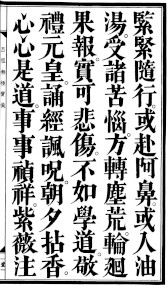 緊緊隨行或赴阿鼻或入油
湯受諸苦惱方轉塵荒輪廻
果報實可悲傷不如學道敬
禮元皇誦經諷呪朝夕拈香
心心是道事事禎祥紫薇注